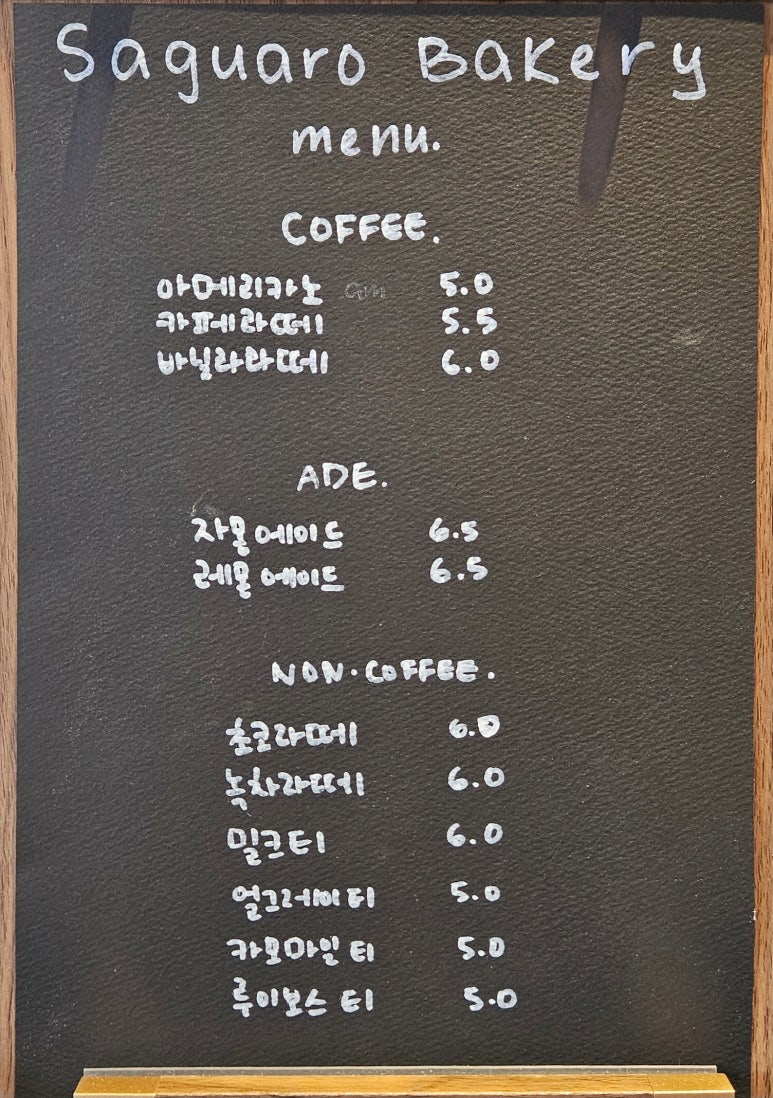 Saguaro Bakery
menu.
COFFEE.
아메리카노 am 5.0
카페라떼 5.5
바닐라라떼 6.0
ADE.
자몽에이드 6.5
레몽에이드 6.5
NON·COFFEE.
초코라떼 6.0
녹차라떼 6.0
밀크티 6.0
얼그레이티 5.0
카모마일 티 5.0
루이보스 티 5.0